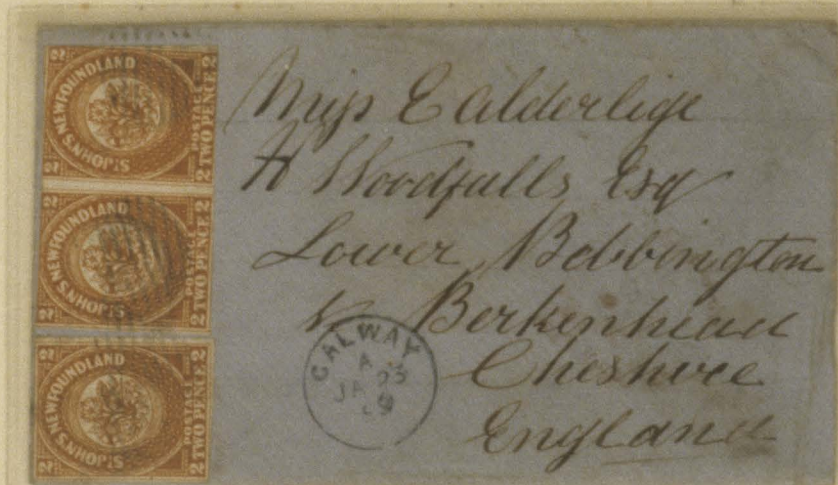 2 2
ST JOHN'S NEWFOUNDLAND
POSTAGE
2 TWO PENCE 2
2 2
ST JOHN'S NEWFOUNDLAND
POSTAGE
2 TWO PENCE 2
2 2
ST JOHN'S NEWFOUNDLAND
POSTAGE
2 TWO PENCE 2
Miss E alderlige
H Woodfalls Esq
Lower Bebbington
Berkenhead
Cheshire
England
GALWAY
A
JA 23
59